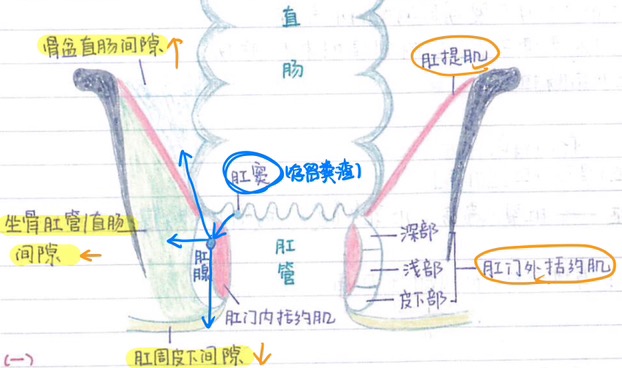 骨盆直肠间隙
直
肠
肛提肌
肛窦
(易留粪渣)
坐骨肛管/直肠
间隙
肛
腺
肛
管
深部
浅部
皮下部
肛门外括约肌
肛门内括约肌
肛周皮下间隙
(一)